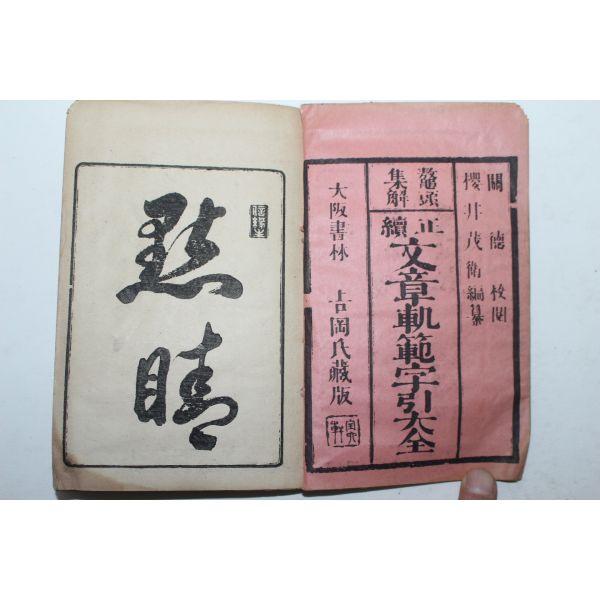 關德校閲
櫻井茂衛編纂
鼇頭
集解
正續
文章軌範字引大全
大阪書林 吉岡氏藏版
點
睛